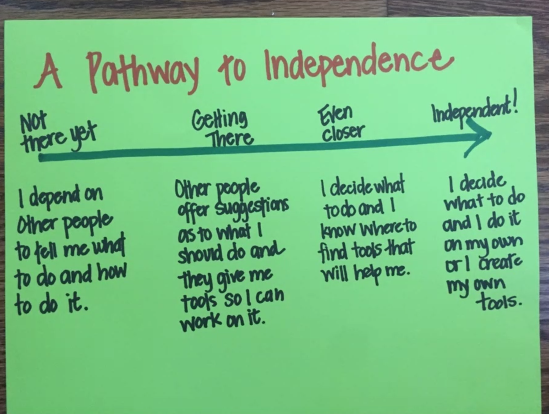 A Pathway to Independence
Not
there yet
Getting
There
Even
closer
Independent!
I depend on
other people
to tell me what
to do and how
to do it.
Other people
offer suggestions
as to what I
should do and
they give me
tools so I can
work on it.
I decide what
to do and I
know where to
find tools that
will help me.
I decide
what to do
and I do it
on my own
or I create
my own
tools.